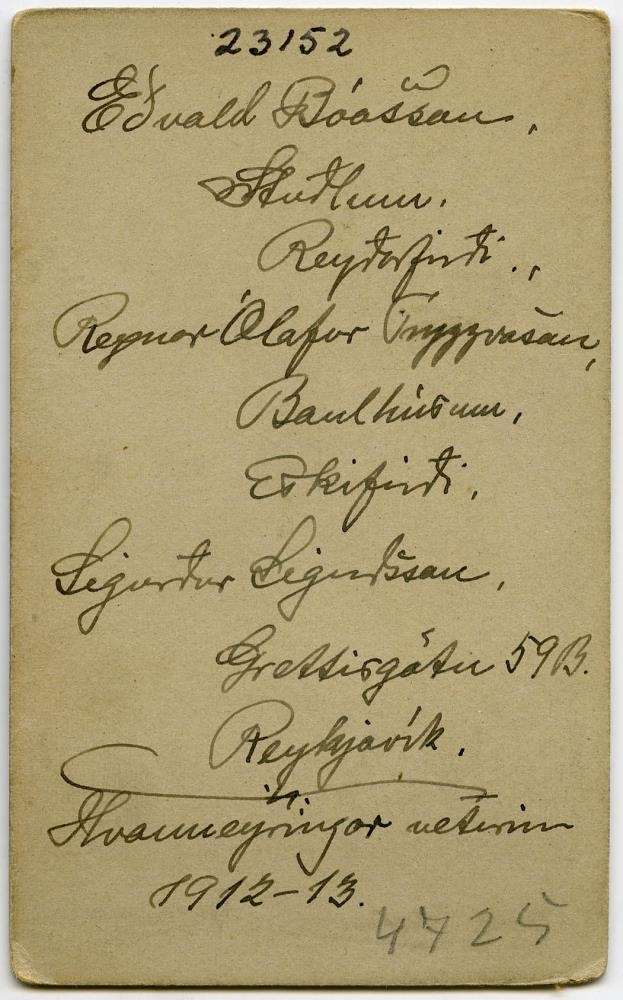 23152
Eðvald Bóasson,
Stuðlum.
Reyðarfirði.,
Regnar Ólafur Tryggvason,
Baulhúsum,
Eskifirði.
Sigurður Sigurðsson,
Grettisgötu 59B.
Reykjavík.
Hvanneyringar veturinn
1912-13.
4725